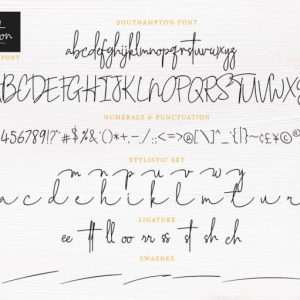 ton
FONT
SOUTHAMPTON FONT
abcdefghijklmnopqrstuvwxyz
ABCDEFGHIJKLMNOPQRSTUVWXYZ
NUMERALS & PUNCTUATION
456789!?"#$%'()*+,-./:;<=>@[\]^_`{|}~¢£¥
STYLISTIC SET
m n p u v w y
a c d e h i k l m t u r
LIGATURE
ee tt ll oo rr ss st sh ch
SWASHES